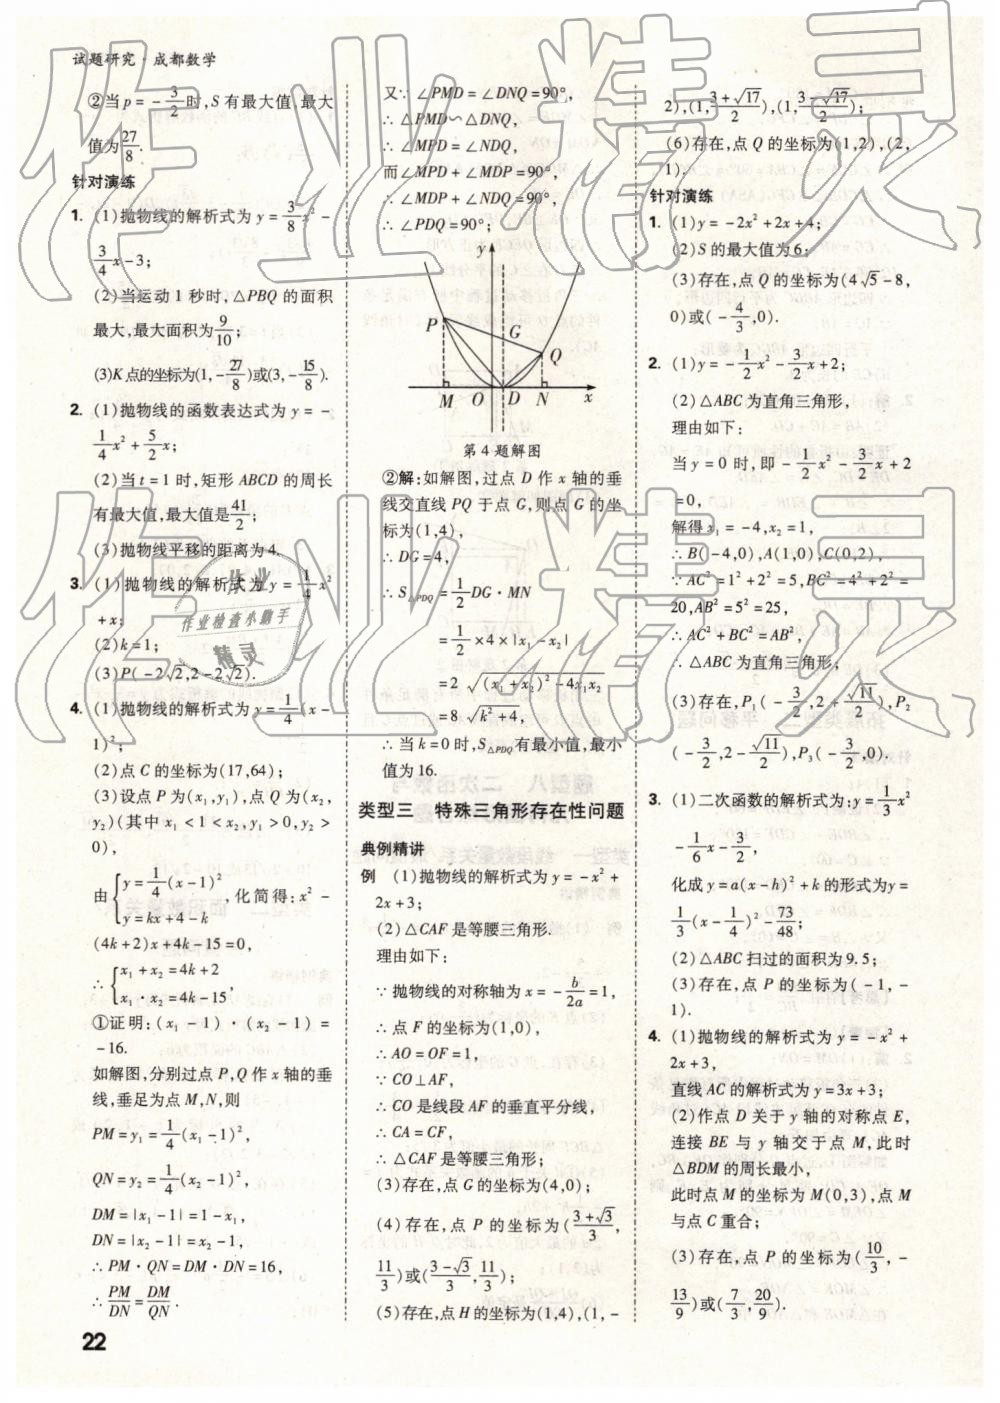 试题研究·成都数学
②当p=-3/2时,S有最大值,最大
值为27/8.
针对演练
1. (1)抛物线的解析式为y=3/8x²-
3/4x-3;
(2)当运动1秒时,△PBQ的面积
最大,最大面积为9/10;
(3)K点的坐标为(1,-27/8)或(3,-15/8).
2. (1)抛物线的函数表达式为y=-
1/4x²+5/2x;
(2)当t=1时,矩形ABCD的周长
有最大值,最大值是41/2;
(3)抛物线平移的距离为4.
3. (1)抛物线的解析式为y=1/4x²
+x;
(2)k=1;
(3)P(-2√2,2-2√2).
4. (1)抛物线的解析式为y=1/4(x-
1)²;
(2)点C的坐标为(17,64);
(3)设点P为(x₁,y₁),点Q为(x₂,
y₂)(其中x₁<1<x₂,y₁>0,y₂>
0),
由{y=1/4(x-1)², y=kx+4-k,化简得:x²-
(4k+2)x+4k-15=0,
∴{x₁+x₂=4k+2 x₁·x₂=4k-15,
①证明:(x₁-1)·(x₂-1)=
-16.
如解图,分别过点P,Q作x轴的垂
线,垂足为点M,N,则
PM=y₁=1/4(x₁-1)²,
QN=y₂=1/4(x₂-1)²,
DM=|x₁-1|=1-x₁,
DN=|x₂-1|=x₂-1,
∴PM·QN=DM·DN=16,
∴PM/DN=DM/QN.
又∵∠PMD=∠DNQ=90°,
∴△PMD∽△DNQ,
∴∠MPD=∠NDQ,
而∠MPD+∠MDP=90°,
∴∠MDP+∠NDQ=90°,
∴∠PDQ=90°;
y
P
G
Q
M O D N x
第4题解图
②解:如解图,过点D作x轴的垂
线交直线PQ于点G,则点G的坐
标为(1,4),
∴DG=4,
∴S△PDQ=1/2DG·MN
=1/2×4×|x₁-x₂|
=2√((x₁+x₂)²-4x₁x₂)
=8√(k²+4),
∴当k=0时,S△PDQ有最小值,最小
值为16.
类型三 特殊三角形存在性问题
典例精讲
例 (1)抛物线的解析式为y=-x²+
2x+3;
(2)△CAF是等腰三角形.
理由如下:
∵抛物线的对称轴为x=-b/2a=1,
∴点F的坐标为(1,0),
∴AO=OF=1,
∵CO⊥AF,
∴CO是线段AF的垂直平分线,
∴CA=CF,
∴△CAF是等腰三角形;
(3)存在,点G的坐标为(4,0);
(4)存在,点P的坐标为((3+√3)/3,
11/3)或((3-√3)/3,11/3);
(5)存在,点H的坐标为(1,4),(1,-
2),(1,(3+√17)/2),(1,(3-√17)/2);
(6)存在,点Q的坐标为(1,2),(2,
1).
针对演练
1. (1)y=-2x²+2x+4;
(2)S的最大值为6;
(3)存在,点Q的坐标为(4√5-8,
0)或(-4/3,0).
2. (1)y=-1/2x²-3/2x+2;
(2)△ABC为直角三角形,
理由如下:
当y=0时,即-1/2x²-3/2x+2
=0,
解得x₁=-4,x₂=1,
∴B(-4,0),A(1,0),C(0,2),
∵AC²=1²+2²=5,BC²=4²+2²=
20,AB²=5²=25,
∴AC²+BC²=AB²,
∴△ABC为直角三角形;
(3)存在,P₁(-3/2,2+√11/2),P₂
(-3/2,2-√11/2),P₃(-3/2,0).
3. (1)二次函数的解析式为:y=1/3x²
-1/6x-3/2,
化成y=a(x-h)²+k的形式为y=
1/3(x-1/4)²-73/48;
(2)△ABC扫过的面积为9.5;
(3)存在,点P的坐标为(-1,-
1).
4. (1)抛物线的解析式为y=-x²+
2x+3,
直线AC的解析式为y=3x+3;
(2)作点D关于y轴的对称点E,
连接BE与y轴交于点M,此时
△BDM的周长最小,
此时点M的坐标为M(0,3),点M
与点C重合;
(3)存在,点P的坐标为(10/3,-
13/9)或(7/3,20/9).
22
作业精灵
作业精灵
作业
作业检查小助手
精灵